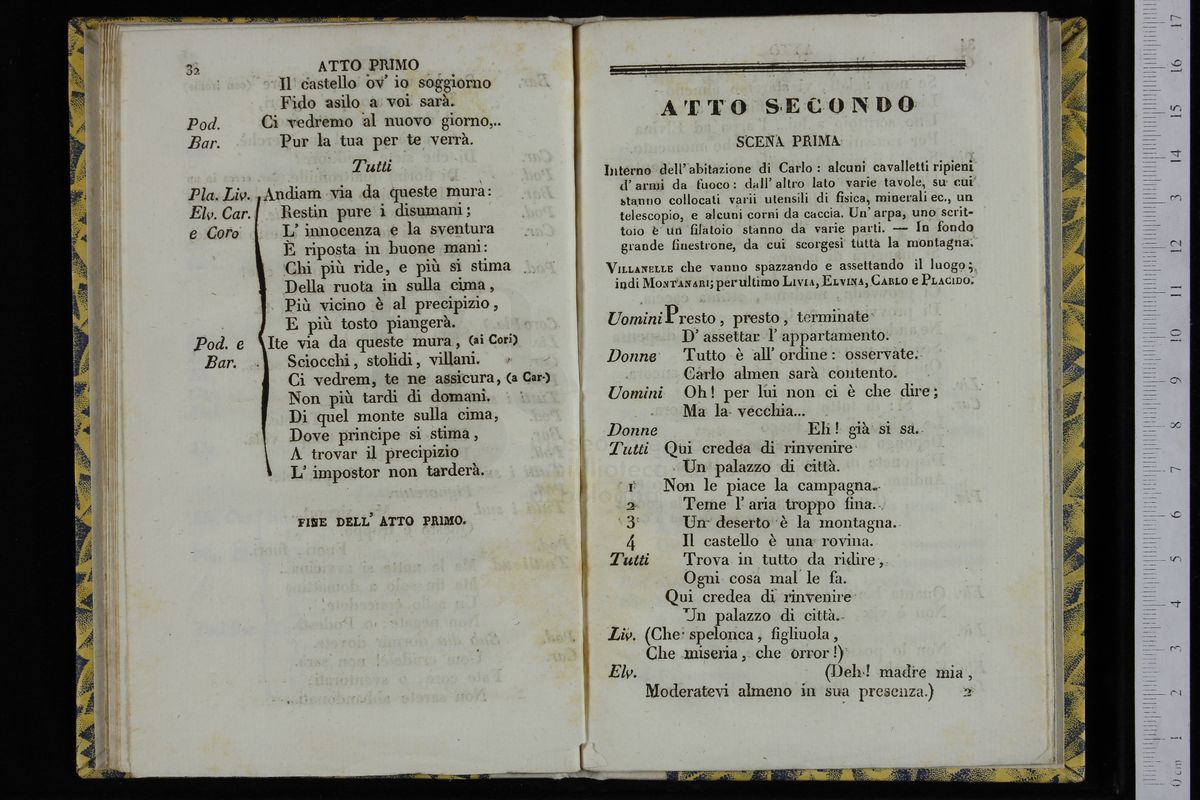 32 ATTO PRIMO
Il castello ov' io soggiorno
Fido asilo a voi sarà.
Pod. Ci vedremo al nuovo giorno,..
Bar. Pur la tua per te verrà.
Tutti
Pla. Liv. Andiam via da queste mura:
Elv. Car. Restin pure i disumani;
e Coro L' innocenza e la sventura
È riposta in buone mani:
Chi più ride, e più si stima
Della ruota in sulla cima,
Più vicino è al precipizio,
E più tosto piangerà.
Pod. e Ite via da queste mura, (ai Cori)
Bar. Sciocchi, stolidi, villani.
Ci vedrem, te ne assicura, (a Car.)
Non più tardi di domani.
Di quel monte sulla cima,
Dove principe si stima,
A trovar il precipizio
L' impostor non tarderà.
FINE DELL' ATTO PRIMO.
ATTO SECONDO
SCENA PRIMA
Interno dell' abitazione di Carlo: alcuni cavalletti ripieni
d' armi da fuoco: dall' altro lato varie tavole, su cui
stanno collocati varii utensili di fisica, minerali ec., un
telescopio, e alcuni corni da caccia. Un' arpa, uno scrit-
toio e un filatoio stanno da varie parti. — In fondo
grande finestrone, da cui scorgesi tutta la montagna.
VILLANELLE che vanno spazzando e assettando il luogo;
indi MONTANARI; per ultimo LIVIA, ELVINA, CARLO e PLACIDO.
Uomini Presto, presto, terminate
D' assettar l' appartamento.
Donne Tutto è all' ordine: osservate.
Carlo almen sarà contento.
Uomini Oh! per lui non ci è che dire;
Ma la vecchia...
Donne Eh! già si sa.
Tutti Qui credea di rinvenire
Un palazzo di città.
1 Non le piace la campagna.
2 Teme l' aria troppo fina.
3 Un deserto è la montagna.
4 Il castello è una rovina.
Tutti Trova in tutto da ridire,
Ogni cosa mal le fa.
Qui credea di rinvenire
Un palazzo di città.
Liv. (Che spelonca, figliuola,
Che miseria, che orror!)
Elv. (Deh! madre mia,
Moderatevi almeno in sua presenza.) 2